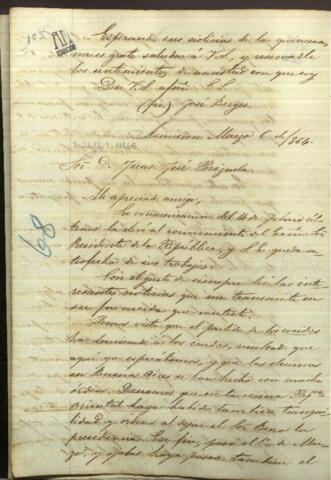 105
Esperando sus noticias de la quincena
me es grato saludar á V.S., y renovarle
los sentimientos de amistad con que soy
De V.S. afmo. S.S.
(fir) José Berges.
Asuncion Marzo 6 de 1864.
Sr. D. Juan José Brizuela.
Mi apreciado amigo,
Su comunicacion del 14 de febrero úl-
timo la elevé al conocimiento del Exmo. Sr.
Presidente de la República, y S.E. queda sa-
tisfecho de sus trabajos.
Con el gusto de siempre leí las inte-
resantes noticias que me transmite en
su favorecida que contesto.
Hemos visto que el partido de los cocidos
ha dominado á los crudos, resultado que
aquí ya esperábamos, y que las elecciones
en Buenos Aires se han hecho con mucho
órden. Deseamos que en la vecina Repca.
oriental haya habido tambien tranqui-
lidad y órden al dejar el Sor. Berro la
presidencia. En fin, pasó el 1o. de Mar-
zo, y ojalá haya pasado tambien el
68